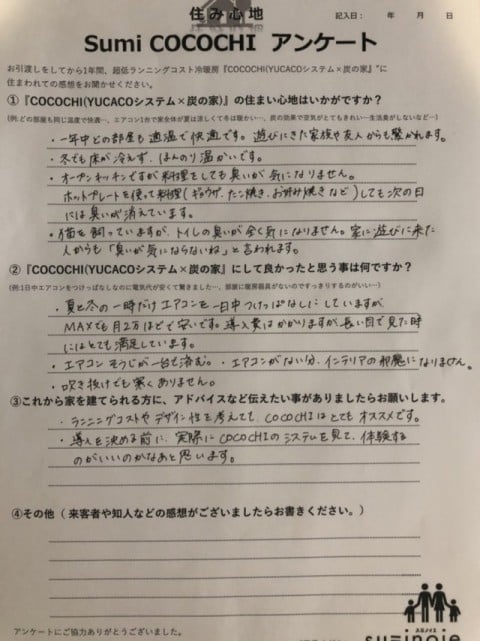 住み心地
記入日： 年 月 日
Sumi COCOCHI アンケート
お引渡しをしてから1年間、超低ランニングコスト冷暖房『COCOCHI(YUCACOシステム×炭の家』"に
住まわれての感想をお聞かせください。
①『COCOCHI(YUCACOシステム×炭の家)』の住まい心地はいかがですか？
(例:どの部屋も同じ温度で快適…、エアコン1台で家全体が夏は涼しくて冬は暖かい…、炭の効果で空気がとてもきれい…生活臭がしないなど…)
・一年中どの部屋も適温で快適です。遊びにきた家族や友人からも驚かれます。
・冬でも床が冷えず、ほんのり温かいです。
・オープンキッチンですが料理をしても臭いが気になりません。
ホットプレートを使って料理（ギョウザ、たこ焼き、お好み焼きなど）しても次の日
には臭いが消えています。
・猫を飼っていますが、トイレの臭いが全く気になりません。家に遊びに来た
人からも「臭いが気にならないね」と言われます。
②『COCOCHI(YUCACOシステム×炭の家』にして良かったと思う事は何ですか？
(例:1日中エアコンをつけっぱなしなのに電気代が安くて驚きました…、部屋に暖房器具がないのですっきりするのがいい…)
・夏と冬の一時だけエアコンを一日中つけっぱなしにしていますが
MAXでも月2万ほどで安いです。導入費はかかりますが長い目で見た時
にはとても満足しています。
・エアコンそうじが一台で済む。・エアコンがない分、インテリアの邪魔になりません。
・吹き抜けでも寒くありません。
③これから家を建てられる方に、アドバイスなど伝えたい事がありましたらお願いします。
・ランニングコストやデザイン性を考えても、COCOCHIはとてもオススメです。
・導入を決める前に、実際にCOCOCHIのシステムを見て、体験する
のがいいのかなあと思います。
④その他（来客者や知人などの感想がございましたらお書きください。）
アンケートにご協力ありがとうございました。
スミノイエ
suminoie